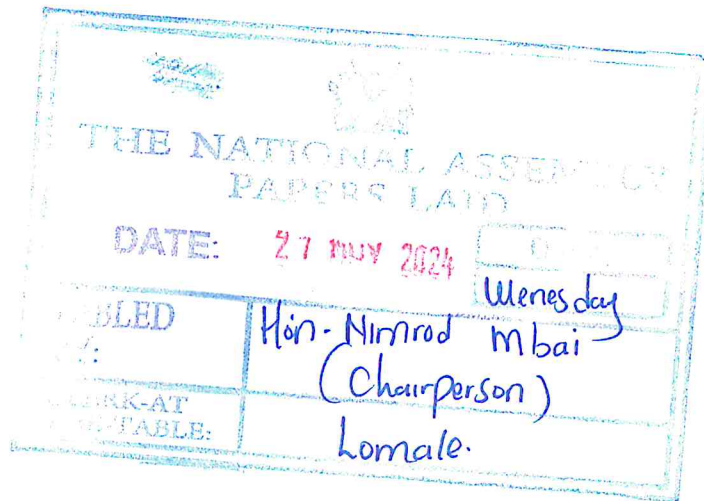 THE NATIONAL ASSEMBLY
PAPERS LAID
DATE: 27 NOV 2024
Wenesday
BLED
Y:
Hon. Nimrod Mbai
(Chairperson)
CLERK-AT
TABLE:
Lomale.